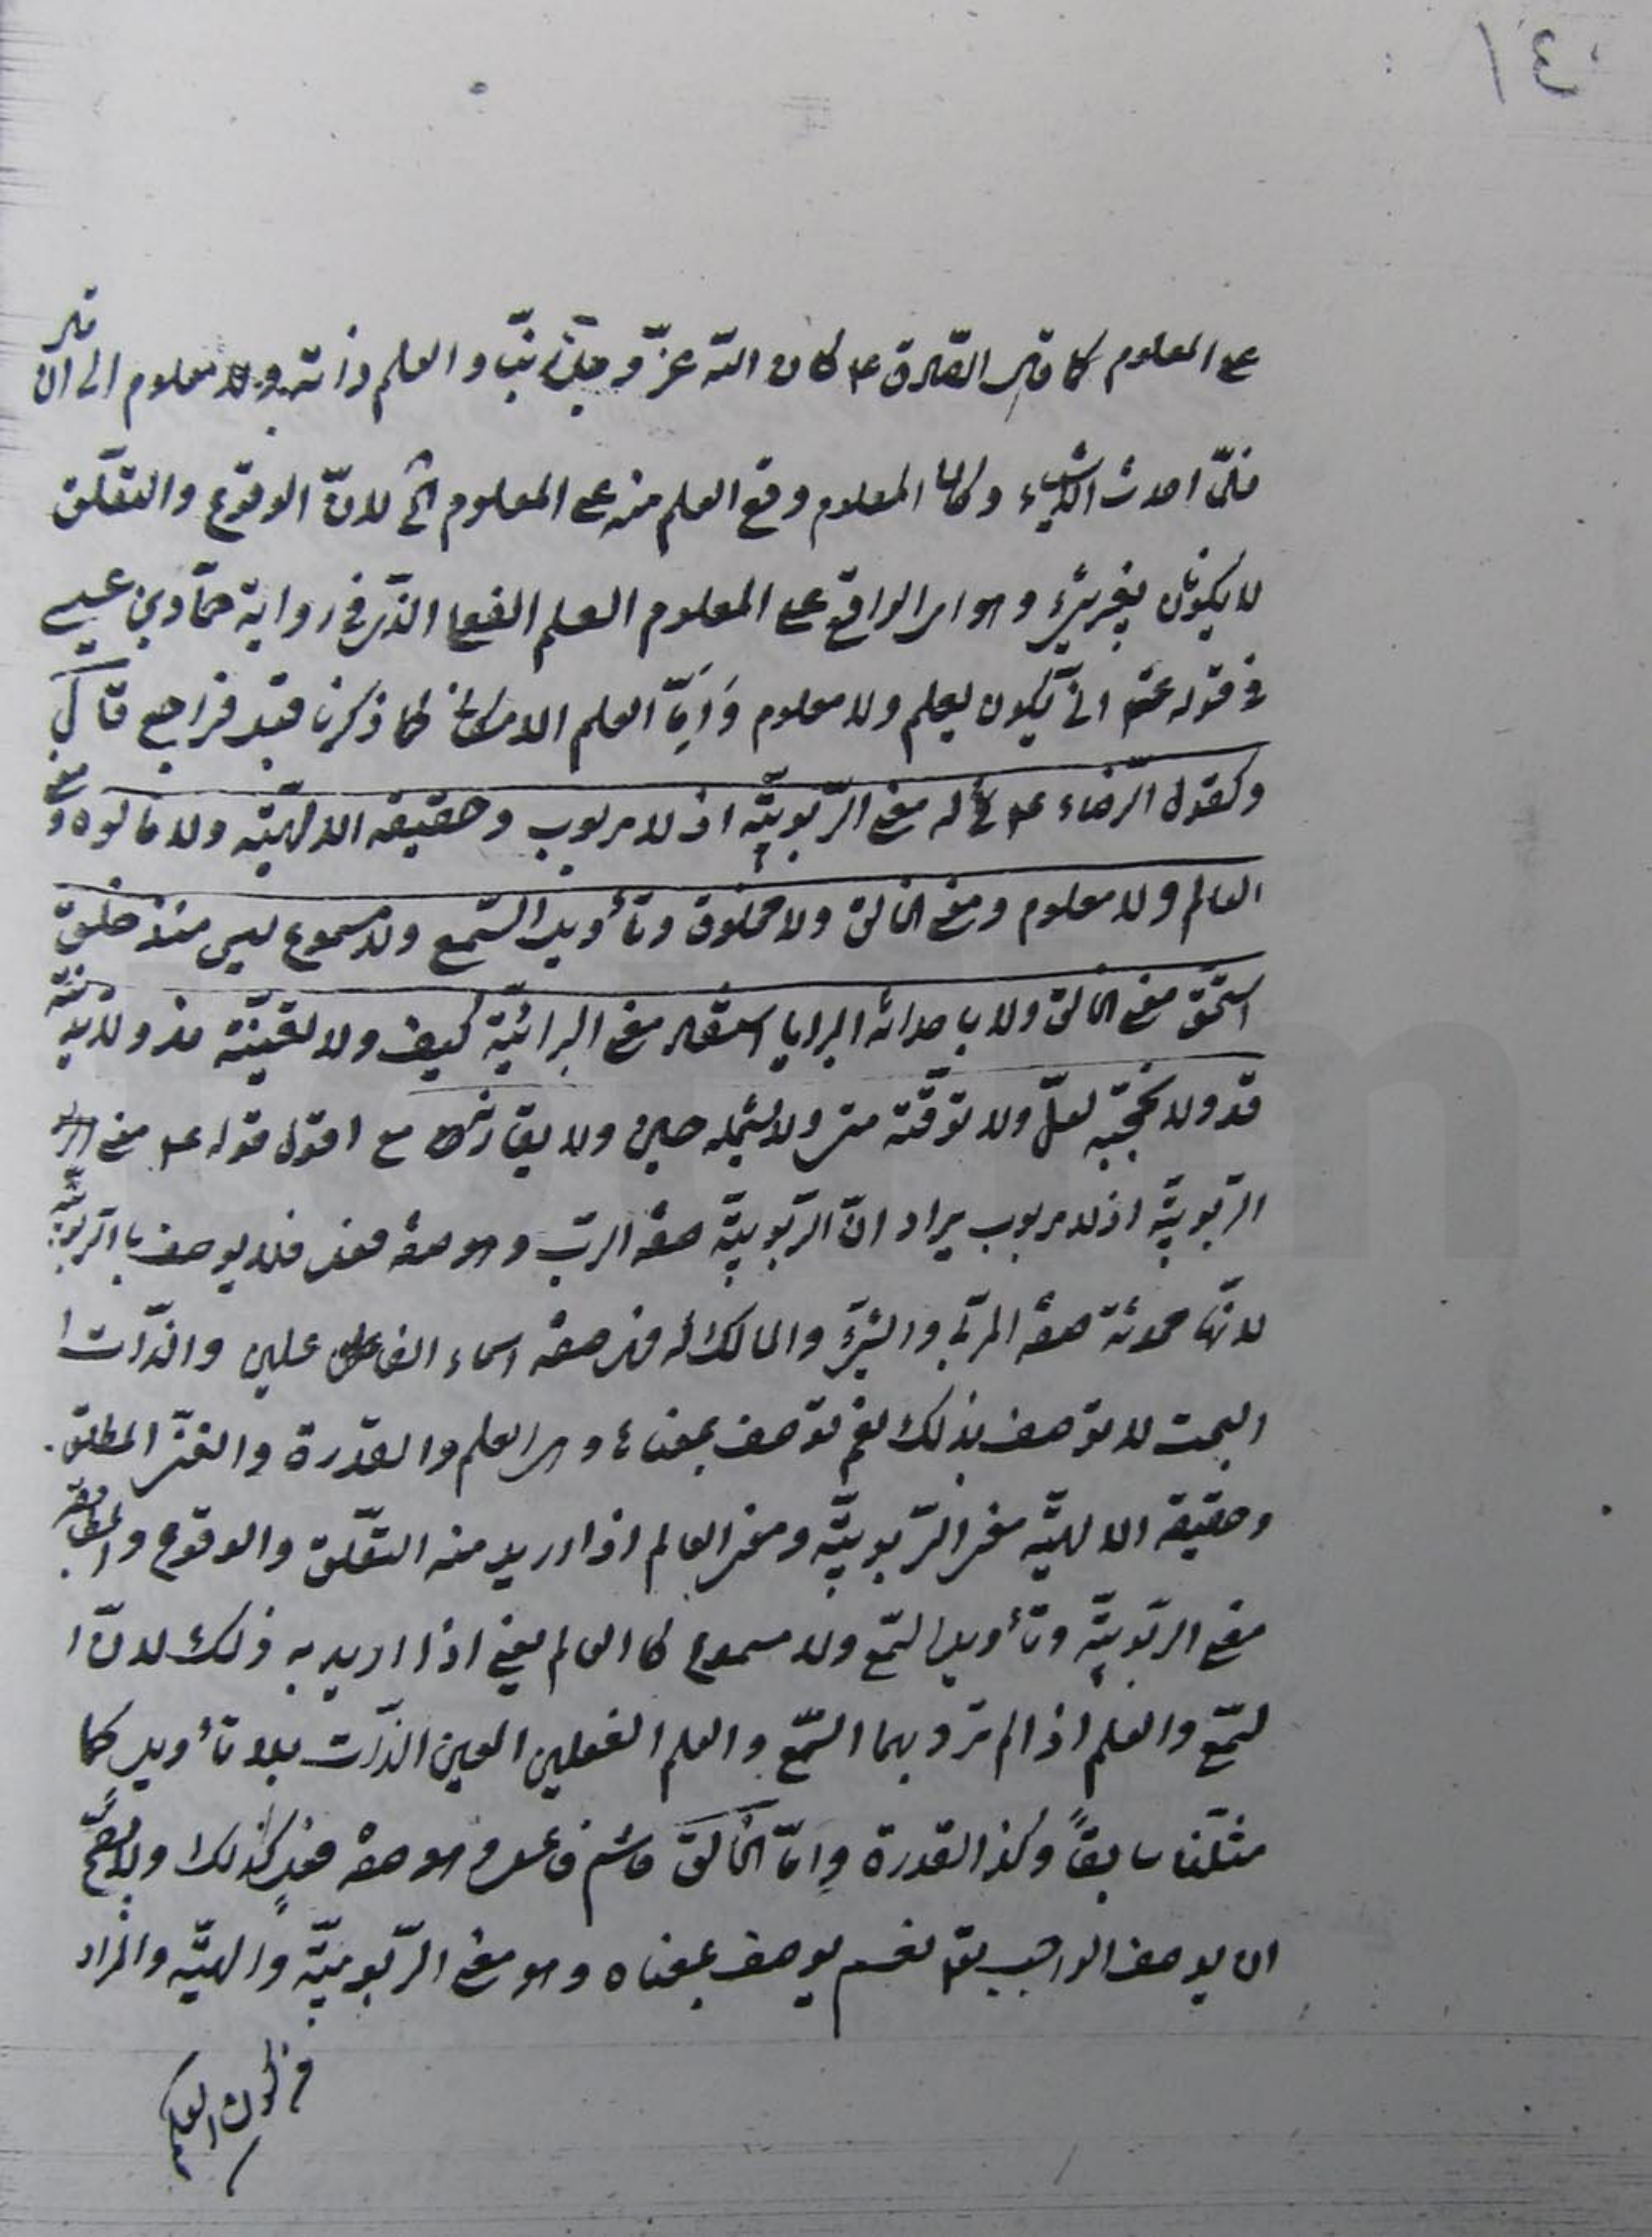 ١٤٠
على المعلوم كما قال الصادق ع كان الله عزّ وجلّ ربّنا والعلم ذاته ولا معلوم الى ان قال
فلمّا احدث الاشياء وكان المعلوم وقع العلم منه على المعلوم الخ لانّ الوقوع والتعلّق
لا يكونان بغير شئ وهو اى الواقع على المعلوم العلم الفعلى الذى فى رواية حمّاد بن عيسى
فى قوله ع انى يكون يعلم ولا معلوم وَاَمّا العلم الامكانى كما ذكرنا قبل فراجع قال
وكقول الرّضاء ع له معنى الرّبوبيّة اذ لا مربوب وحقيقه الالهيّته ولا مالوه ومعنى
العالم ولا معلوم ومعنى الخالق ولا مخلوق وتأويل السّمع ولا مسموع ليس منذ خلق
استحق معنى الخالق ولا باحداثه البرايا استفاد معنى البرائيّة كيف ولا تغيّبه مذ ولا تدنيه
قد ولا تحجبه لعلّ ولا توقّته متى ولا يشمله حين ولا يقارنه مع اقول قوله ع معنى
الرّبوبيّة اذ لا مربوب يراد انّ الرّبوبيّة صفة الربّ وهو صفة فعل فلا يوصف بالربوبيّة
لانّها محدثة صفة المربّى والشئ والمالك له فهى صفة اسماء الفاعلين والذّات ا
البحت لا توصف بذلك نعم توصف بمعناه وهى العلم والقدرة والغنى المطلق.
وحقيقة الالهيّة معنى الرّبوبيّة ومعنى العالم اذا اريد منه التعلّق والوقوع والمطابقة
معنى الربوبيّة وتأويل السّمع ولا مسموع كا العالم يعنى اذا اريد به ذلك لانّ ا
لسّمع والعلم اذا لم ترد بهما السّمع والعلم الفعليين العين الذّات بلا تأويل كما
مثّلنا سابقاً وكذا القدرة وامّا الخالق فاسم فاعل وهو صفة فعل كذلك ولا يصحّ
ان يوصف الواجب تع نعم يوصف بمعناه وهو معنى الرّبوبيّة والهيّة والمراد